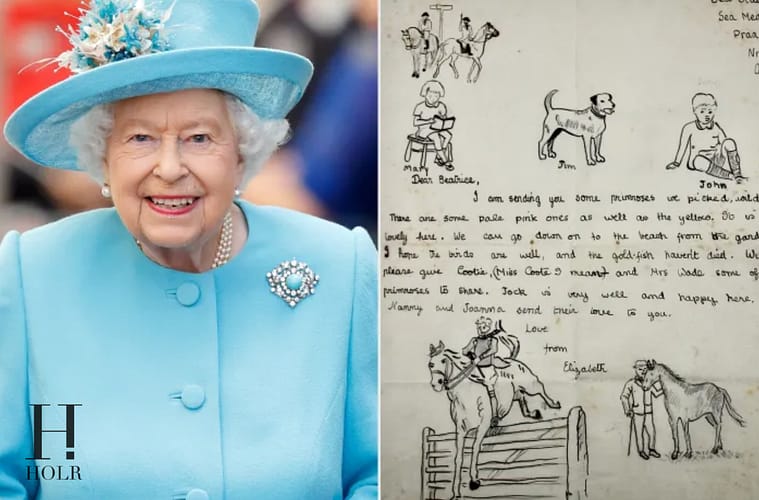 Sea Mea
Mary
Jim
John
Dear Beatrice,
I am sending you some primroses we picked, wild
There are some pale pink ones as well as the yellow. It is
lovely here. We can go down on to the beach from the gard
I hope the birds are well, and the gold-fish haven't died. W
please give Cootie, (Miss Coote I mean) and Mrs Wade some of
primroses to share. Jock is very well and happy here.
Nanny and Joanna send their love to you.
Love
from
Elizabeth
H
HOLR